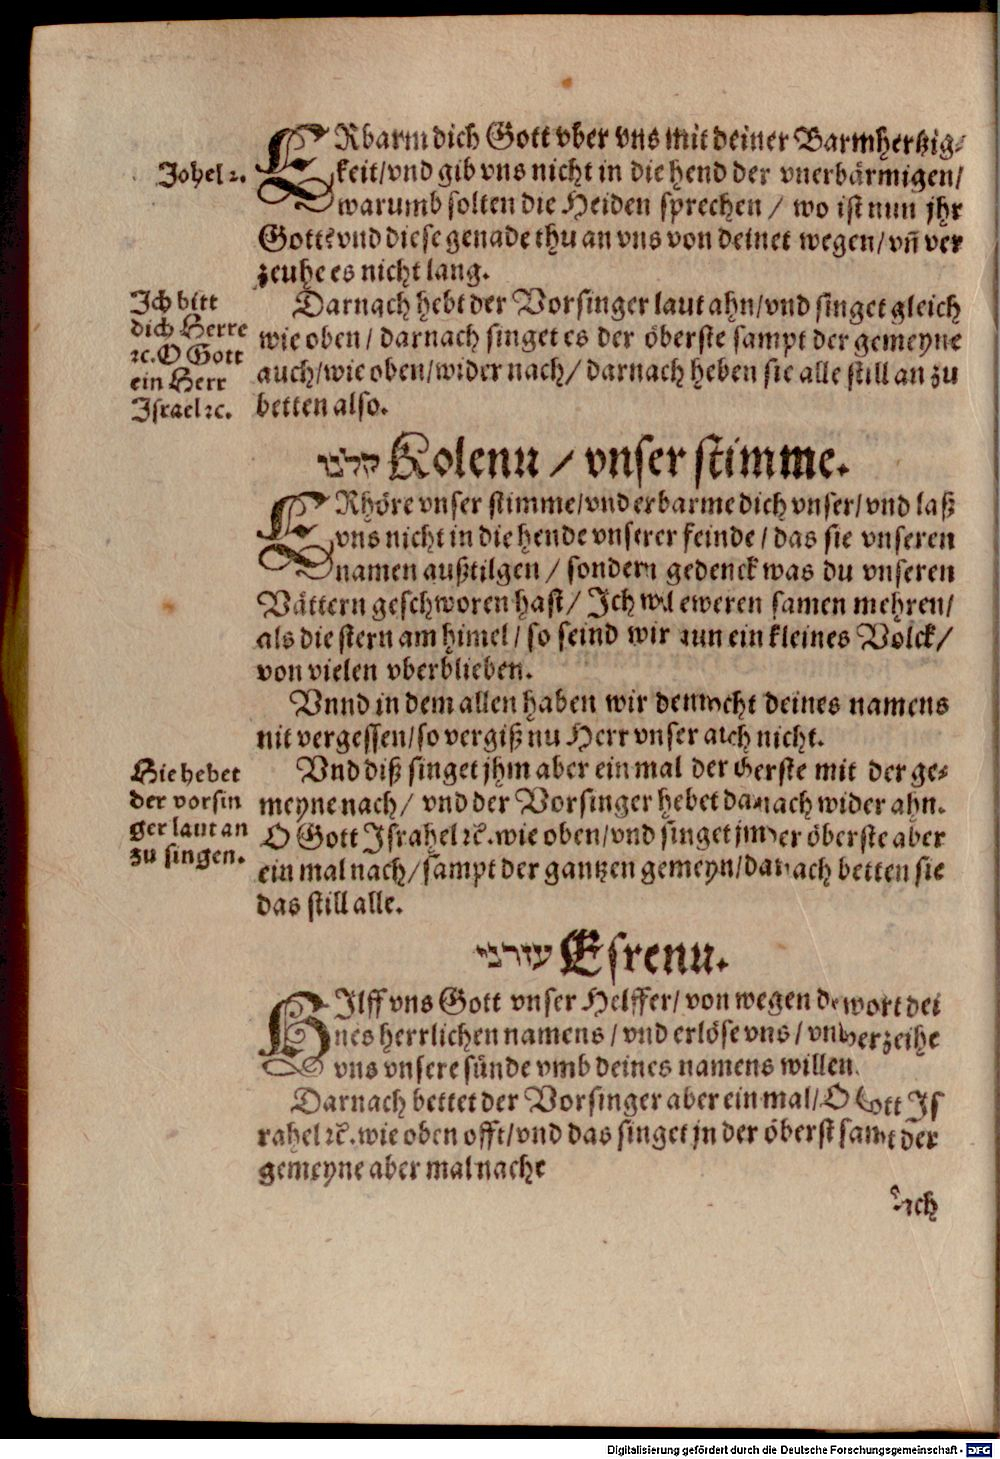 ERbarm dich Gott vber vns mit deiner Barmhertzig⸗
Johel 2.
keit/vnd gib vns nicht in die hend der vnerbärmigen/
warumb solten die Heiden sprechen / wo ist nun jhr
Gott? vnd diese genade thu an vns von deinet wegen/ vñ ver
zeuhe es nicht lang.
Ich bitt
dich Herre
ꝛc. O Gott
ein Herr
Israel ꝛc.
Darnach hebt der Vorsinger laut ahn/vnd singet gleich
wie oben / darnach singet es der öberste sampt der gemeyne
auch/wie oben/wider nach/ darnach heben sie alle still an zu
betten also.
קולנו Kolenu / vnser stimme.
ERhöre vnser stimme/vnd erbarme dich vnser/ vnd laß
vns nicht in die hende vnserer feinde / das sie vnseren
namen außtilgen / sondern gedenck was du vnseren
Vättern geschworen hast/ Ich wil eweren samen mehren/
als die stern am himel / so seind wir nun ein kleines Volck/
von vielen vberblieben.
Vnnd in dem allen haben wir dennocht deines namens
nit vergessen/so vergiß nu Herr vnser auch nicht.
Hie hebet
der vorsin
ger laut an
zu singen.
Vnd diß singet jhm aber ein mal der öerste mit der ge⸗
meyne nach/ vnd der Vorsinger hebet danach wider ahn.
O Gott Israhel ꝛc. wie oben/vnd singet jm der öberste aber
ein mal nach/ sampt der gantzen gemeyn/danach betten sie
das still alle.
עזרני Esrenu.
HIlff vns Gott vnser Helffer/ von wegen der wort dei
nes herrlichen namens / vnd erlöse vns / vnd verzeihe
vns vnsere sünde vmb deines namens willen.
Darnach bettet der Vorsinger aber ein mal/O Gott Is
rahel ꝛc. wie oben offt/vnd das singet jn der öberst sampt der
gemeyne aber mal nache
Digitalisierung gefördert durch die Deutsche Forschungsgemeinschaft - DFG